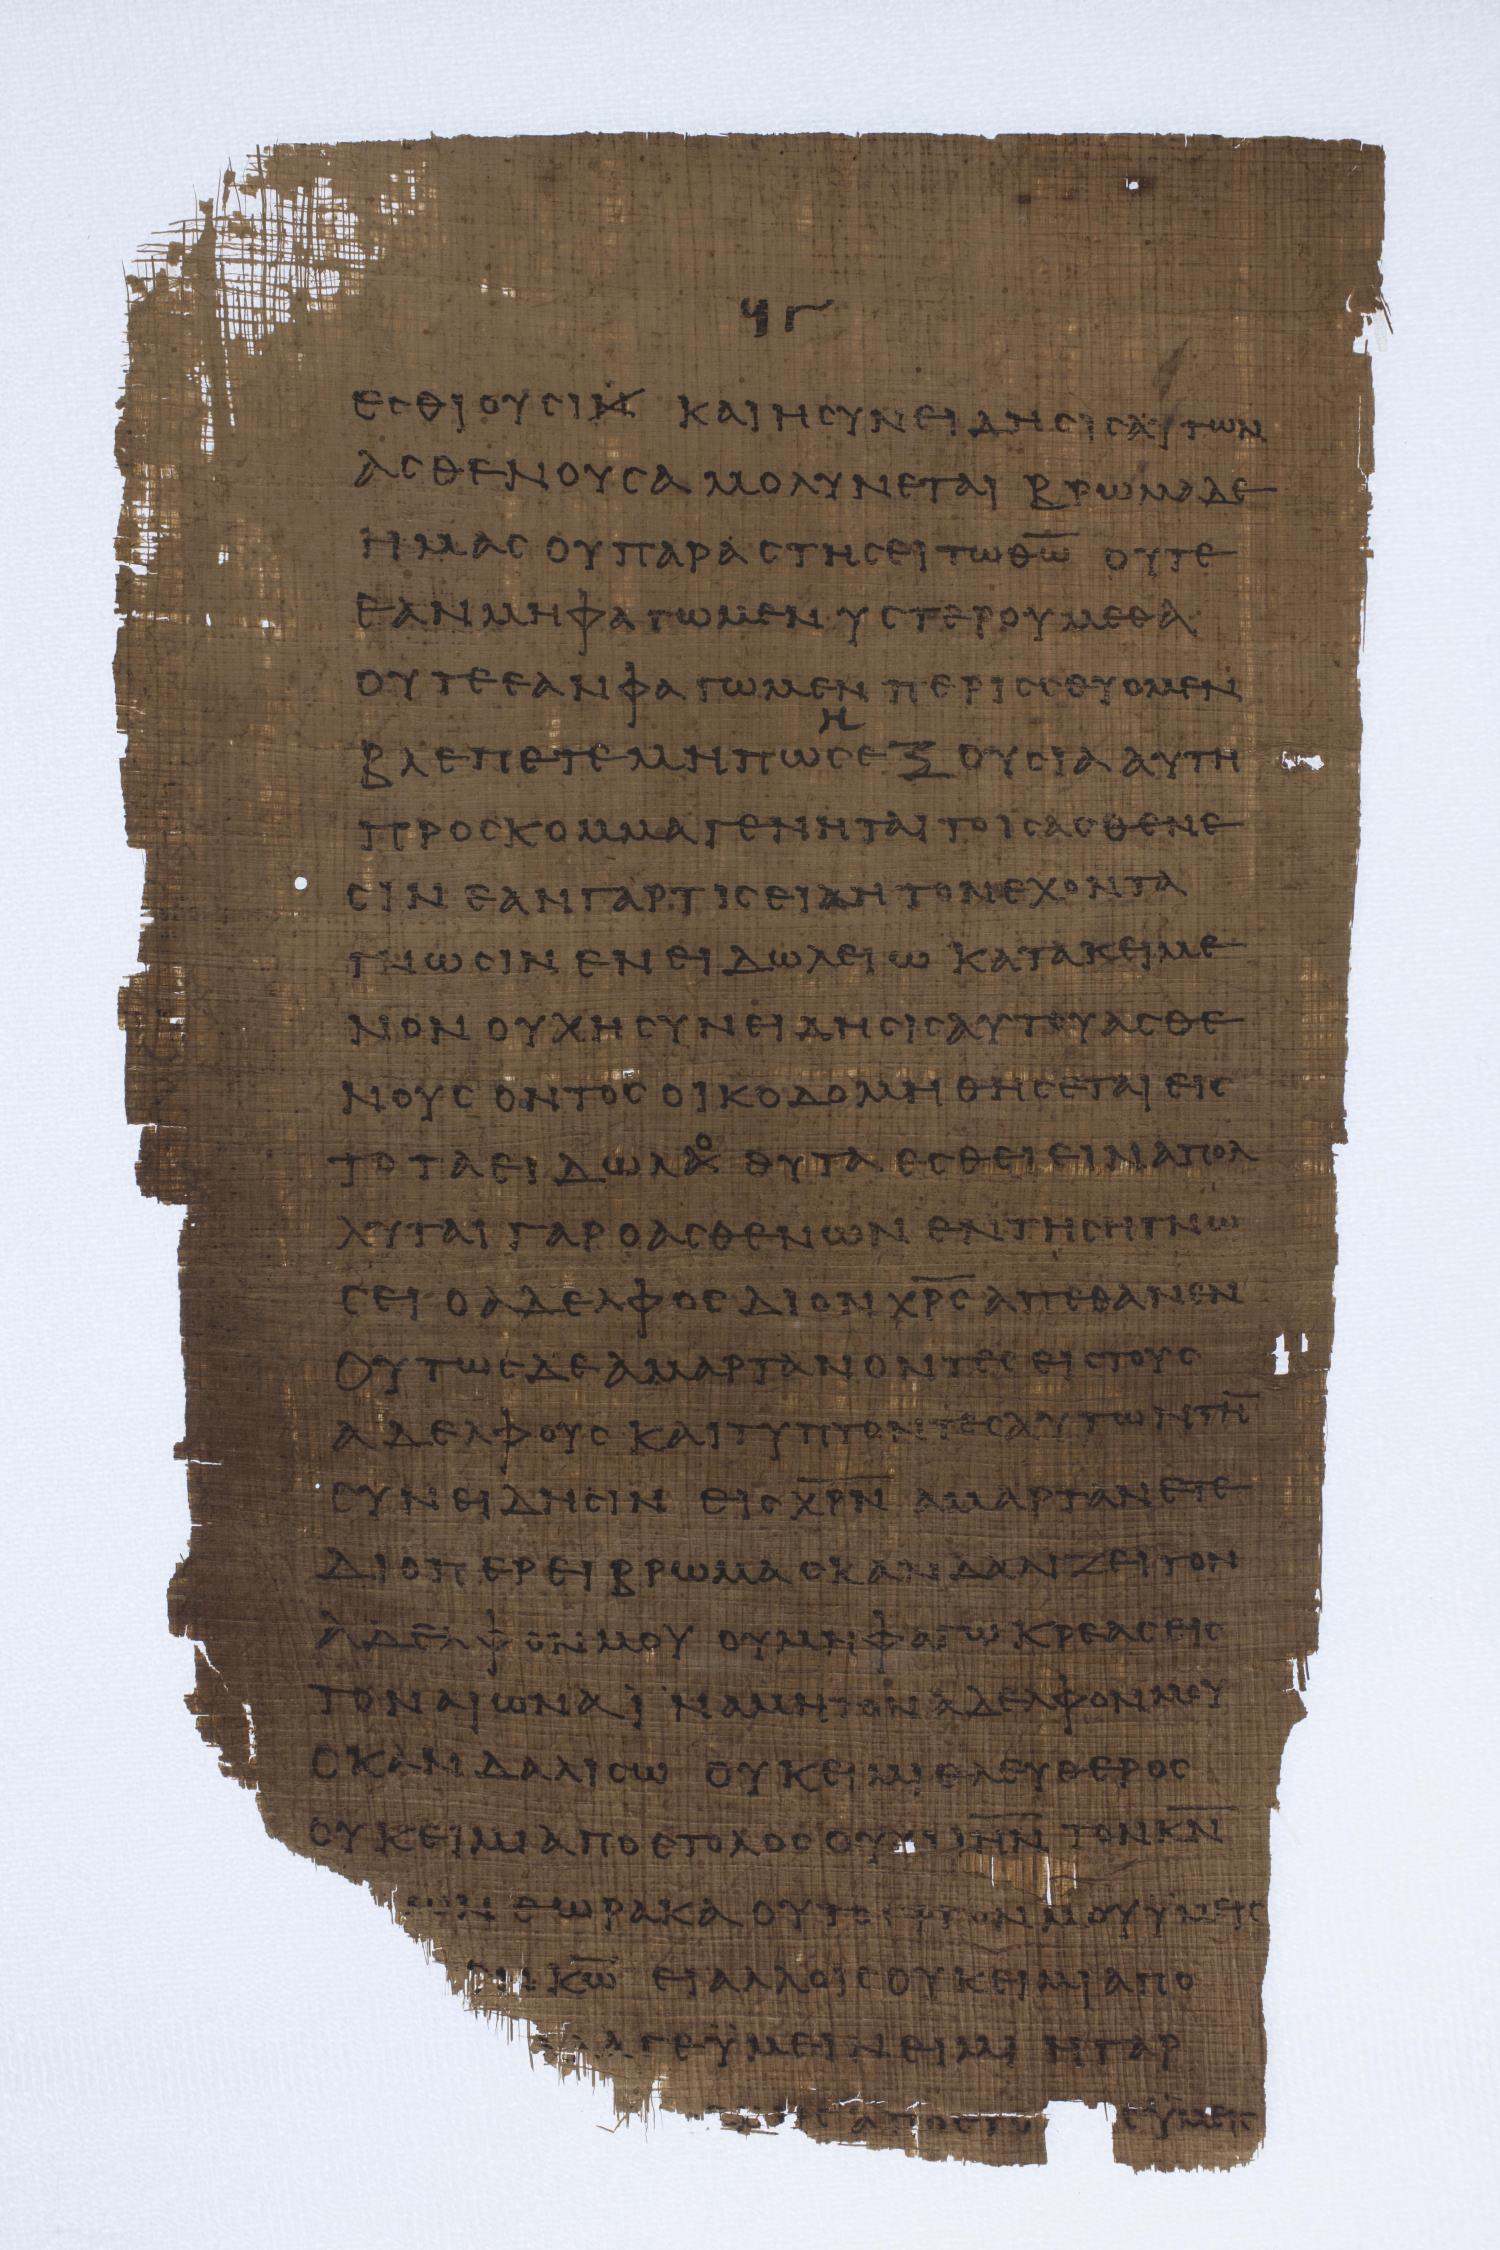 ϥγ
εσθιουσιν και η συνειδησις αυτων
ασθενουσα μολυνεται βρωμα δε
ημας ου παραστησει τω θ̅ω̅ ουτε
εαν μη φαγωμεν υστερουμεθα
ουτε εαν φαγωμεν περισσευομεν
βλεπετε μη πως ε`η´ξουσια αυτη
προσκομμα γενηται τοις ασθενε
σιν εαν γαρ τις ειδη τον εχοντα
γνωσιν εν ειδωλειω κατακειμε
νον ουχ η συνειδησις αυτου ασθε
νους οντος οικοδομηθησεται εις
το τα ειδωλα`ο´ θυτα εσθειειν απολ
λυται γαρ ο ασθενων εν τη ση γνω
σει ο αδελφος δι ον χ̅ρ̅ς̅ απεθανεν
ουτως δε αμαρτανοντες εις τους
αδελφους και τυπτοντες αυτων τη̅
συνειδησιν εις χ̅ρ̅ν̅ αμαρτανετε
διοπερ ει βρωμα σκανδαλιζει τον
αδελφον μου ου μη φαγω κρεας εις
τον αιωνα ϊνα μη τον αδελφον μου
σκανδαλισω ουκ ειμι ελευθερος
ουκ ειμι αποστολος ουχι ι̅η̅ν̅ τον κ̅ν̅
ημων εωρακα ου το εργον μου υμεις
κ̅ω̅ ει αλλοις ουκ ειμι απο
γε ϋμειν ειμι η γαρ
αποστο ϋμεις